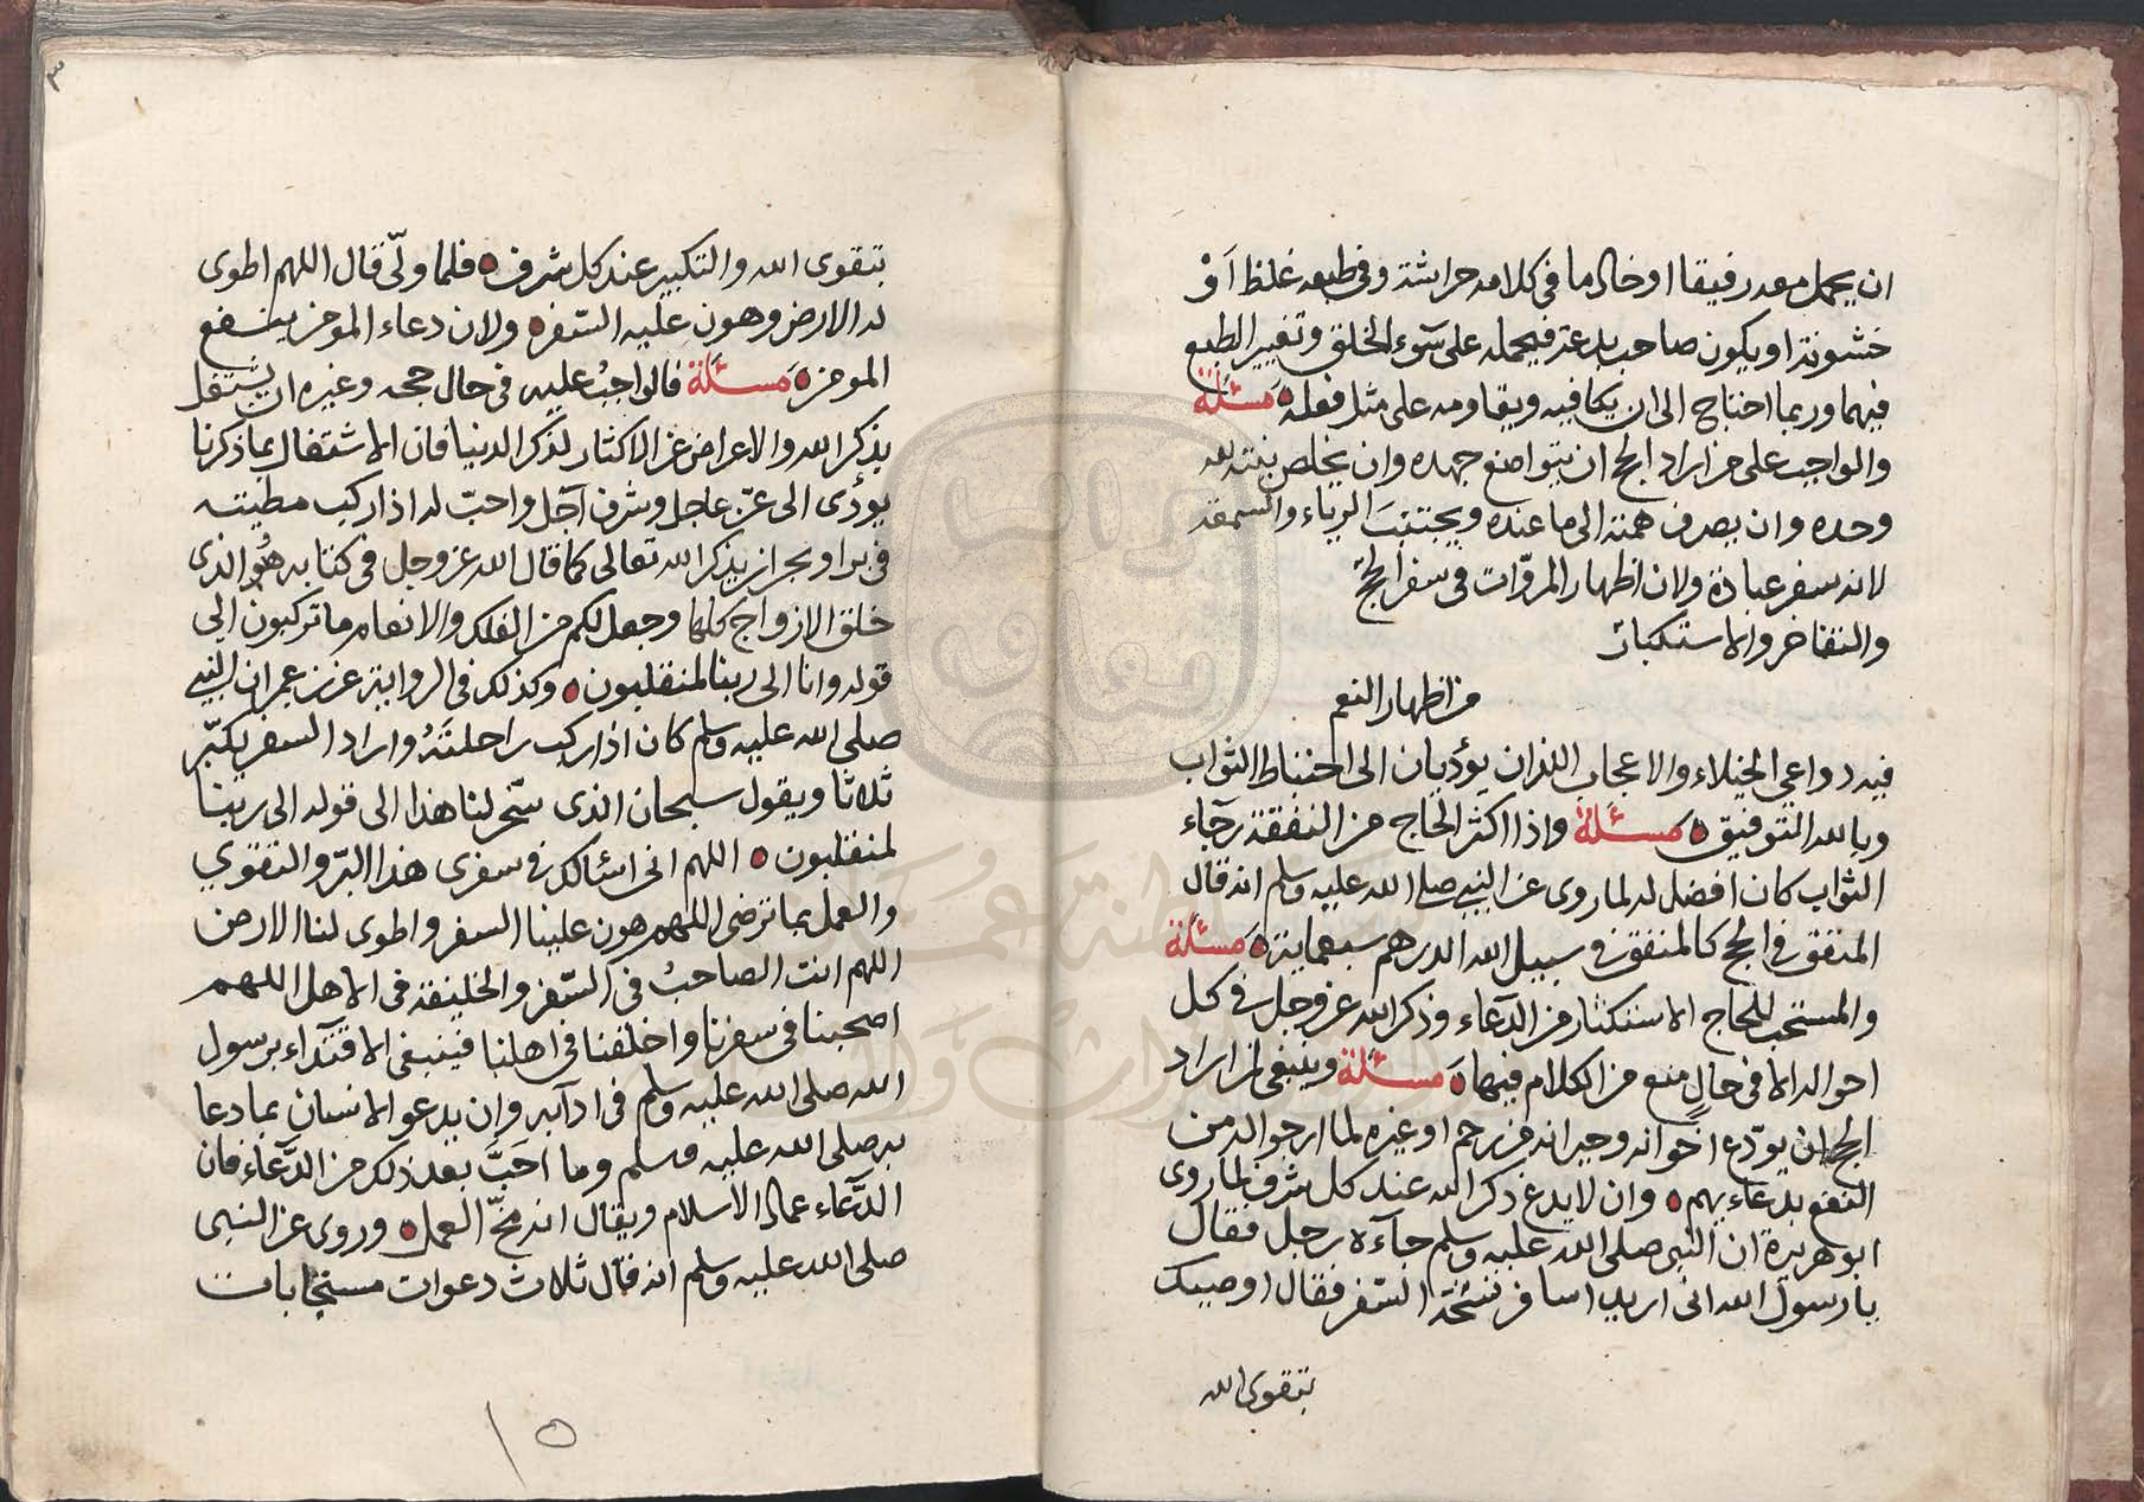 ان يحمل معه رفيقا او خالا ما في كلامه حراشة وفي طبعه غلظ اَوْ
خشونة او يكون صاحب بدعة فيحمله على سوء الخلق وتغيير الطبع
فيهما وربما احتاج الى ان يكافيه ويقاومه على مثل فعله مسئلة
والواجب على من اراد الحج ان يتواضع جهده وان يخلص نيته لله
وحده وان يصرف همته الى ما عنده ويجتنب الرياء والسمعة
لانه سفر عبادة ولان اظهار المروّات في سفر الحج
والتفاخر والاستكبار
من اظهار النعم
فيه دواعي الخيلاء والاعجاب اللذان يؤديان الى احتباط الثواب
وبالله التوفيق مسئلة واذا اكثر الحاج من النفقة رجاء
الثواب كان افضل له لما روى عن النبي صلى الله عليه وسلم انه قال
المنفق في الحج كالمنفق في سبيل الله الدرهم سبعماية مسئلة
والمستحب للحاج الاستكثار من الدعاء وذكر الله عز وجل في كل
احواله الا في حالٍ منع من الكلام فيها مسئلة وينبغي لمن اراد
الحج ان يودّع اخوانه وجيرانه من رحم او غيره لما ارجو له من
النفع بدعاءيهم وان لا يدع ذكر الله عند كل شرف لما روى
ابو هريرة ان النبي صلى الله عليه وسلم جآءه رجل فقال
يا رسول الله انى اريد اسافر نسخة السّفر فقال اوصيك
بتقوى الله
٣
بتقوى الله والتكبير عند كل شرف فلما ولّى قال اللهم اطوى
له الارض وهون عليه السّفر ولان دعاء المومن ينفع
المومن مسئلة فالواجبُ عليه في حال حجه وغيره ان يشتغل
بذكر الله والاعراض عن الاكثار لذكر الدنيا فان الاشتغال بما ذكرنا
يؤدى الى عزّ عاجل وشرف آجل واحبّ له اذا ركب مطيته
في بر او بحر ان يذكر الله تعالى كما قال الله عز وجل في كتابه هُو الذى
خلق الازواج كلها وجعل لكم من الفلك والانعام ما تركبون الى
قوله وانا الى ربنا لمنقلبون وكذلك في الرواية عن بن عمر ان النبي
صلى الله عليه وسلم كان اذا ركب راحلتَهُ واراد السفر يكبّر
ثلاثا ويقول سبحان الذى سخّر لنا هذا الى قوله الى ربنا
لمنقلبون اللهم انى اسئالك في سفرى هذا البرّ والتقوي
والعمل بما ترضى اللهم هون علينا السفر واطوى لنا الارض
اللهم انت الصاحبُ في السّفر والخليفة في الاهل اللهم
اصحبنا في سفرنا واخلفنا في اهلنا فينبغى الاقتدآء برسول
الله صلى الله عليه وسلم في ادآبه وان يدعو الانسان بما دعا
به صلى الله عليه وسلم وما احَبَّ بعد ذلك من الدَّعاء فان
الدَّعاء عماد الاسلام ويقال انه مخّ العمل وروى عن النبي
صلى الله عليه وسلم انه قال ثلاث دعوات مستجابات
١٥